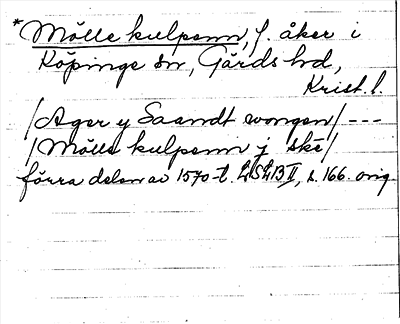 *Mölle kulpenn, f. åker i
Köpinge sn, Gärds hd,
Krist. l.
/Ager y Saandt wongen/ ---
/Mölle kulpenn j ske/
förra delen av 1570-t. LSLB II, s. 166. orig.